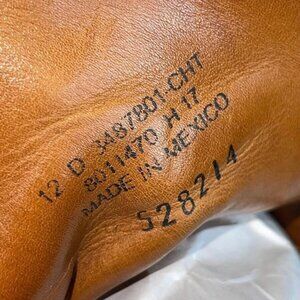 12 D 3487801-CHT
8011470 H 17
MADE IN MEXICO
528214